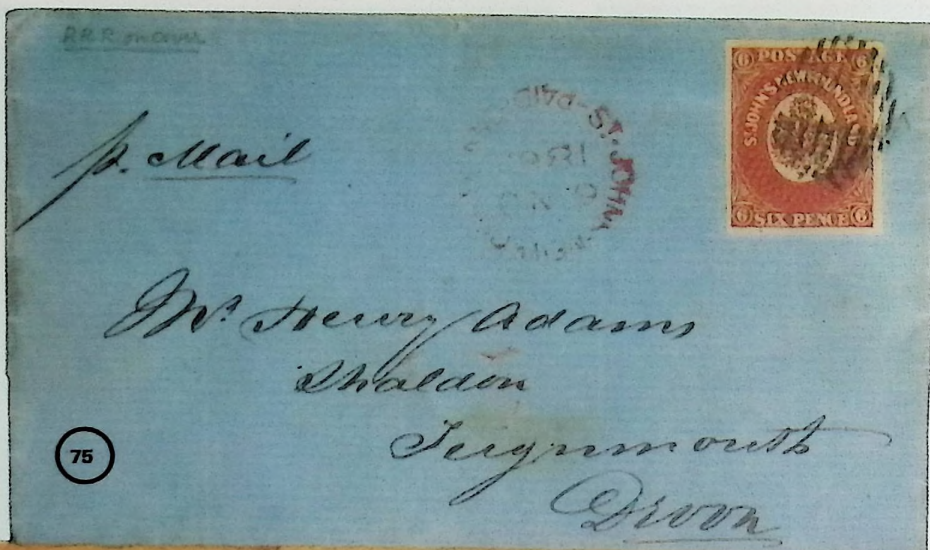 RRR on cover
p. Mail
ST. JOHN
PAID
6 POSTAGE 6
ST. JOHN'S NEWFOUNDLAND
6 SIX PENCE 6
Mr. Henry Adams
Shaldon
Teignmouth
Devon
75